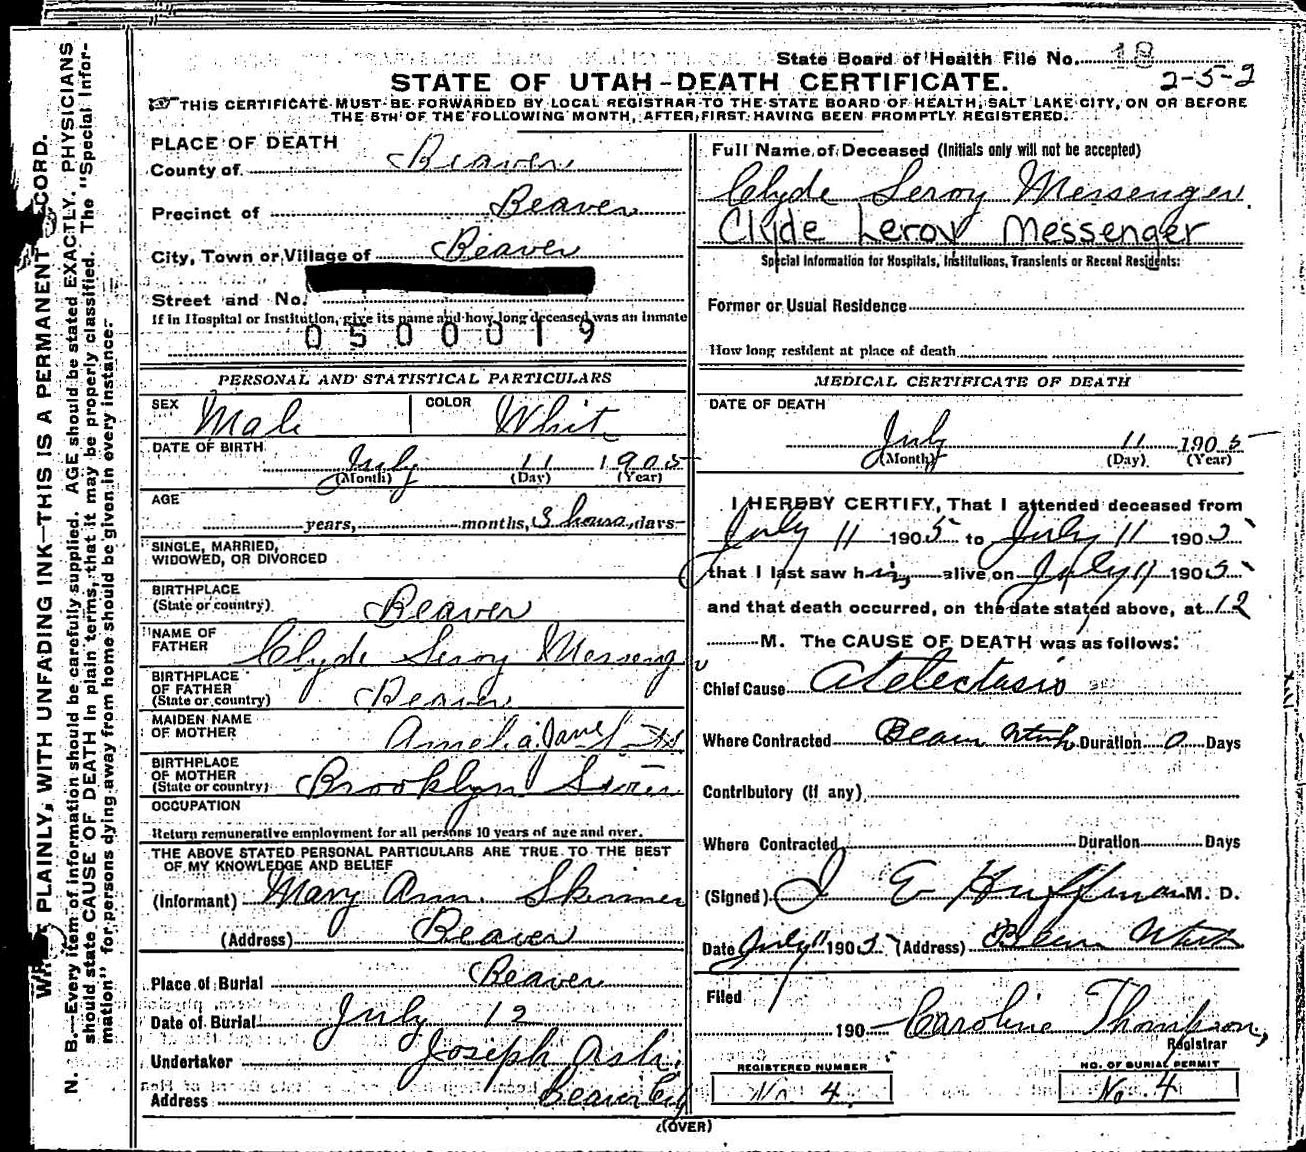 State Board of Health File No. 18
2-5-2
STATE OF UTAH-DEATH CERTIFICATE.
THIS CERTIFICATE MUST BE FORWARDED BY LOCAL REGISTRAR TO THE STATE BOARD OF HEALTH, SALT LAKE CITY, ON OR BEFORE
THE 5TH OF THE FOLLOWING MONTH, AFTER FIRST HAVING BEEN PROMPTLY REGISTERED.
PLACE OF DEATH
County of Beaver
Precinct of Beaver
City, Town or Village of Beaver
Street and No.
If in Hospital or Institution, give its name and how long deceased was an inmate
0500019
PERSONAL AND STATISTICAL PARTICULARS
SEX Male COLOR White
DATE OF BIRTH
July 11 1905
(Month) (Day) (Year)
AGE
years, months, 3 hours, days
SINGLE, MARRIED,
WIDOWED, OR DIVORCED
BIRTHPLACE
(State or country) Beaver
NAME OF
FATHER Clyde Leroy Messenger
BIRTHPLACE
OF FATHER
(State or country) Beaver
MAIDEN NAME
OF MOTHER Amelia Jane
BIRTHPLACE
OF MOTHER
(State or country) Brooklyn
OCCUPATION
Return remunerative employment for all persons 10 years of age and over.
THE ABOVE STATED PERSONAL PARTICULARS ARE TRUE TO THE BEST
OF MY KNOWLEDGE AND BELIEF
(Informant) Mary Ann Skinner
(Address) Beaver
Place of Burial Beaver
Date of Burial July 12
Undertaker Joseph Ash.
Address Beaver City
Full Name of Deceased (Initials only will not be accepted)
Clyde Leroy Messenger
Clyde Leroy Messenger
Special Information for Hospitals, Institutions, Transients or Recent Residents:
Former or Usual Residence
How long resident at place of death
MEDICAL CERTIFICATE OF DEATH
DATE OF DEATH
July 11 1905
(Month) (Day) (Year)
I HEREBY CERTIFY, That I attended deceased from
July 11 1905 to July 11 1905
that I last saw him alive on July 11 1905
and that death occurred, on the date stated above, at 12
M. The CAUSE OF DEATH was as follows:
Chief Cause Atelectasis
Where Contracted Beaver Utah Duration 0 Days
Contributory (if any)
Where Contracted Duration Days
(Signed) J E Huffman M. D.
Date July 11 1905 (Address) Beaver Utah
Filed
190 Caroline Thompson,
Registrar
REGISTERED NUMBER
No 4
NO. OF BURIAL PERMIT
No. 4
(OVER)
PLAINLY, WITH UNFADING INK—THIS IS A PERMANENT
N. B.—Every item of information should be carefully supplied. AGE should be stated EXACTLY. PHYSICIANS
should state CAUSE OF DEATH in plain terms, that it may be properly classified. The "Special Infor-
mation" for persons dying away from home should be given in every instance.